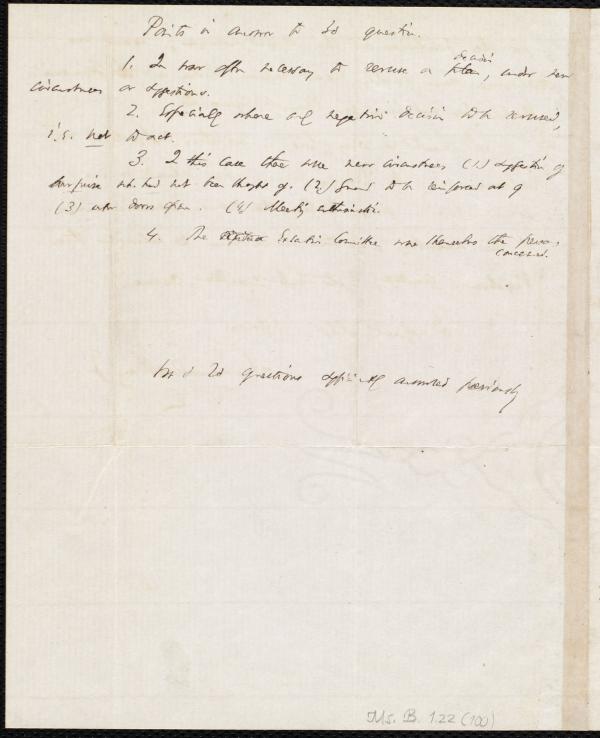 Points in answer to 3d question.
1. In war often necessary to reverse a plan, decision under new
circumstances or suggestions.
2. Especially where only negative decision to be reversed,
i.e. not to act.
3. In this case there were new circumstances (1.) suggestion of
surprise wh. had not been thought of. (2) Guard to be reinforced at 9
(3) outer doors open. (4) Meeting enthusiastic.
4. The Executive Committee were themselves the persons
concerned.
1st & 2d questions sufficiently answered previously
Ms. B. 1.22 (100)